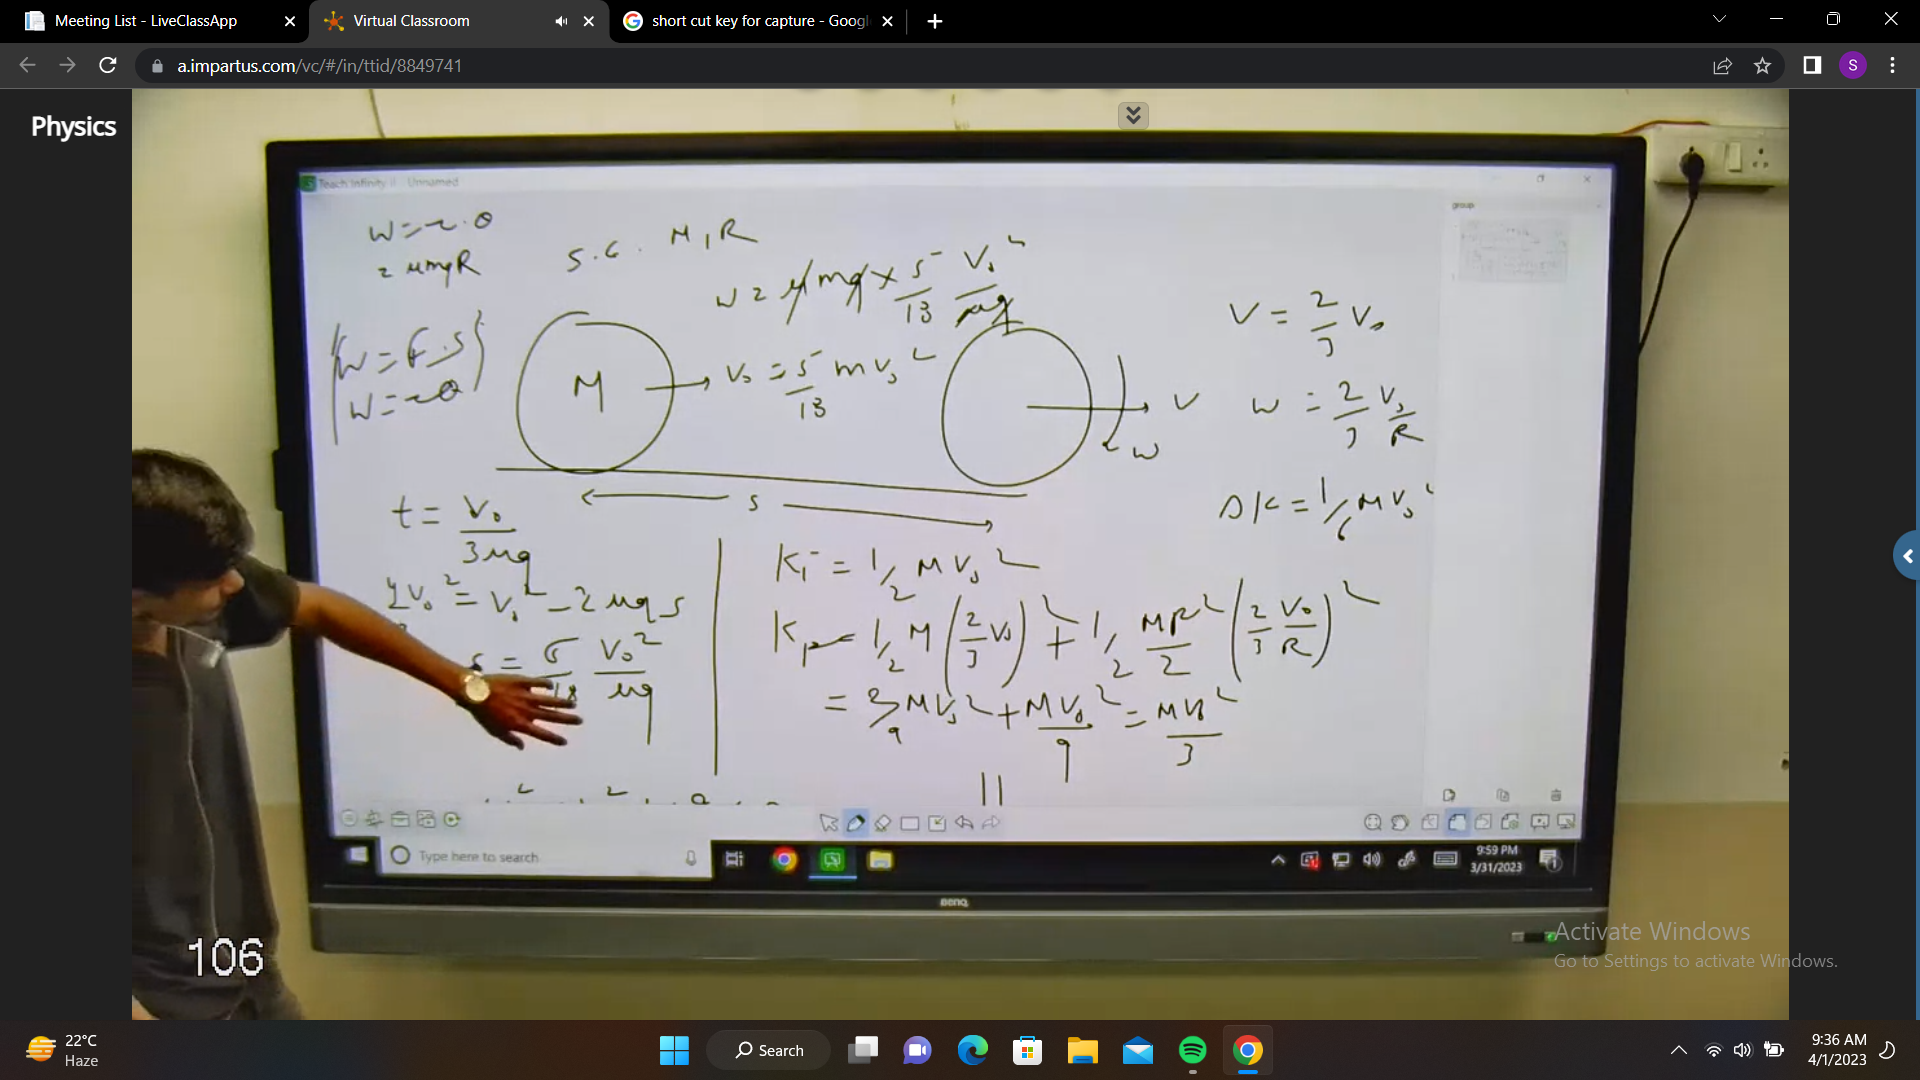 Meeting List - LiveClassApp
Virtual Classroom
short cut key for capture - Googl
a.impartus.com/vc/#/in/ttid/8849741
S
Physics
Teach Infinity Unnamed
group
S.C. M, R
= μmgR
W = μmg × 5/18 V₀²/μg
V = 2/3 V₀
W = F.S
M
V₀ = 5/18 m V₀²
V
ω = 2/3 V₀/R
ω
S
t = V₀/3μg
ΔK = 1/6 M V₀²
Ki = 1/2 M V₀²
V₀² = V₀² - 2μgS
= 1/2 M (2/3 V₀)² + 1/2 MR²/2 (2/3 V₀/R)²
S = 5/18 V₀²/μg
= 2/9 M V₀² + M V₀²/9 = M V₀²/3
Type here to search
9:59 PM
3/31/2023
BenQ
106
Activate Windows
Go to Settings to activate Windows.
22°C
Haze
Search
9:36 AM
4/1/2023